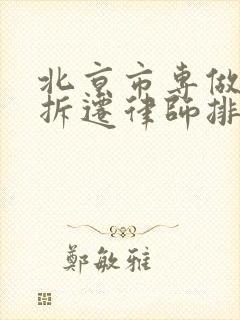 北京市专做
拆遷律師排
鄭敏雅